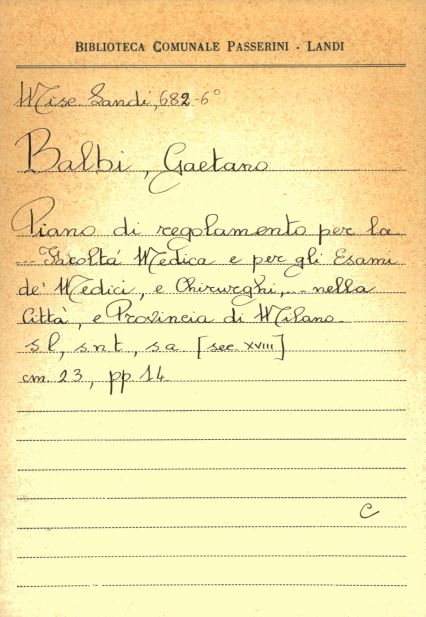 BIBLIOTECA COMUNALE PASSERINI - LANDI
Misc. Landi, 682-6°
Balbi, Gaetano
Piano di regolamento per la
... Facoltá Medica e per gli Esami
de' Medici, e Chirurghi,... nella
Cittá, e Provincia di Milano.
s l, s n t, s a [sec. XVIII]
cm. 23, pp 14
C